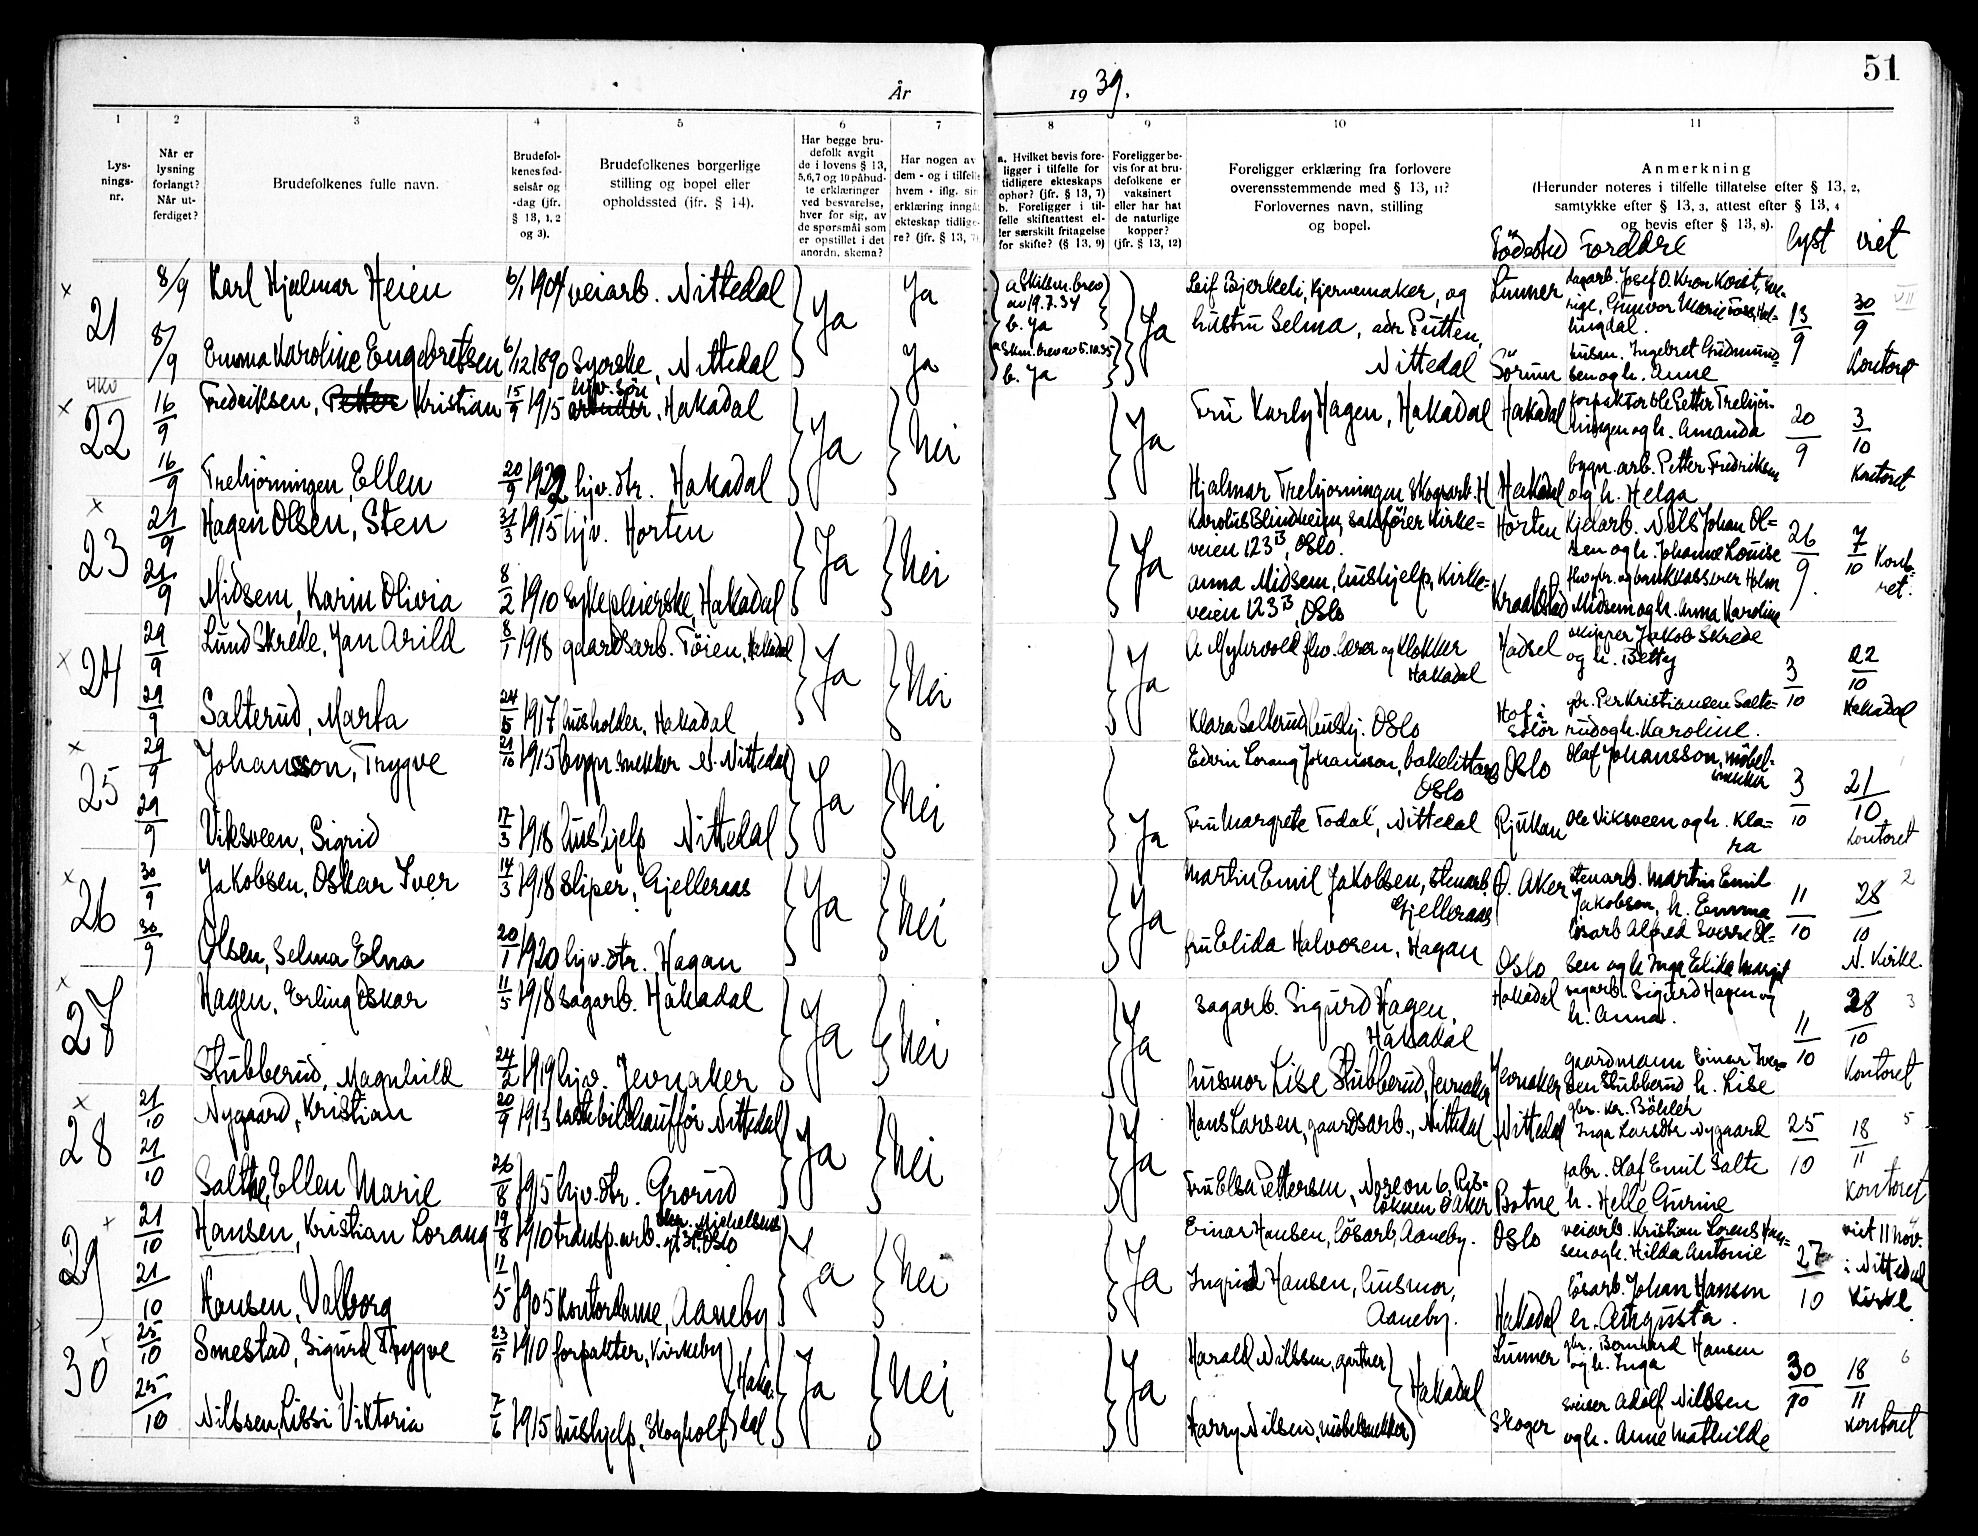 51
År
1939.
1
2
3
4
5
6
7
8
9
10
11
Lys-
nings-
nr.
Når er
lysning
forlangt?
Når ut-
ferdiget?
Brudefolkenes fulle navn.
Brudefol-
kenes fød-
selsår og
-dag (jfr.
§ 13, 1, 2
og 3).
Brudefolkenes borgerlige
stilling og bopel eller
opholdssted (jfr. § 14).
Har begge bru-
defolk avgit
de i lovens § 13,
5,6,7 og 10 påbud-
te erklæringer
ved besvarelse,
hver for sig, av
de spørsmål som
er opstillet i det
anordn. skema?
Har nogen av
dem - og i tilfelle
hvem - iflg. sin
erklæring inngått
ekteskap tidlige-
re? (jfr. § 13, 7)
a. Hvilket bevis fore-
ligger i tilfelle for
tidligere ekteskaps
ophør? (jfr. § 13, 7)
b. Foreligger i til-
felle skifteattest el-
ler særskilt fritagelse
for skifte? (§ 13, 9)
Foreligger be-
vis for at bru-
defolkene er
vaksinert
eller har hat
de naturlige
kopper?
(jfr. § 13, 12)
Foreligger erklæring fra forlovere
overensstemmende med § 13, 11?
Forlovernes navn, stilling
og bopel.
Anmerkning
(Herunder noteres i tilfelle tillatelse efter § 13, 2,
samtykke efter § 13, 3, attest efter § 13, 4
og bevis efter § 13, 8).
Födested Foreldre lyst viet
x 21
8/9 Karl Hjalmar Heien 6/1 1904 veiarb. Nittedal
Ja Ja
a Skilsm. brev
av 19.7.34
b. Ja
Ja
Leif Bjerkeli, Kjernemaker, og
hustru Selma, adr Putten,
Nittedal
Lunner
13/9
30/9
Kontoret
8/9 Emma Karoline Engebretsen 6/12 1890 Syerske, Nittedal
Ja
a Skm. brev av 5.10.35
b. Ja
Sørum
husm. Ingebret Gudmund-
sen og h. Anne
4KV
x 22
16/9 Fredriksen, Petter Kristian 15/9 1915 hjv. sön
arbeider, Hakadal
Ja Nei Ja
Fru Karly Hagen, Hakadal
Hakadal
forpakter Ole Petter Trehjør-
ningen og h. Amanda
20/9
3/10
Kontoret
16/9 Trehjørningen, Ellen 20/9 1922 hjv. dtr. Hakadal
Hjalmar Trehjørningen Skogsarb. H
Hakadal
bygn. arb. Petter Fredriksen
og h. Helga
x 23
21/9 Hagen Olsen, Sten 31/3 1915 hjv. Horten
Ja Nei Ja
Karolus Blindheim, sakfører Kirke=
veien 123 B, Oslo.
Horten
Kjelarb. Nils Johan Ol=
sen og h. Johanne Louise
26/9.
7/10 Konto-
ret.
21/9 Midsem, Karin Olivia 8/2 1910 Sykepleierske, Hakadal
Anna Midsem, hushjelp, Kirke=
veien 123 B, Oslo
Kraakstad
Midsem og h. Anna Karoline
x 24
29/9 Lund Skrede, Jan Arild 8/1 1918 gaardsarb. Töien, Hakadal
Ja Nei Ja
A Myhrvold fhv. lærer og Klokker
Hakadal
Hadsel
skipper Jakob Skrede
og h. Betty
3/10
22/10
Hakadal
29/9 Salterud, Marta 24/5 1917 husholder, Hakadal
Klara Salterud, hushj. Oslo
Hof i
Solör
gbr. Per Kristiansen Salte-
rud og h. Karoline.
x 25
29/9 Johansson, Trygve 21/10 1915 bygn snekker N. Nittedal
Ja Nei Ja
Edvin Lorang Johansson, bakelittarb
Oslo
Oslo
Olaf Johansson, möbel-
snekker
3/10
21/10
Kontoret
29/9 Viksveen, Sigrid 17/3 1918 hushjelp Nittedal
Fru Margrete Todal, Nittedal
Rjukan
Ole Viksveen og h. Kla-
ra
x 26
30/9 Jakobsen, Oskar Iver 14/3 1918 Sliper, Gjelleraas
Ja Nei Ja
Martin Emil Jakobsen, stenarb
Gjelleraas
Ö. Aker
stenarb. Martin Emil
Jakobsen, h. Emma
11/10
28/10 2
N. Kirke.
30/9 Olsen, Selma Elna 20/1 1920 hjv. dtr. Hagan
fru Elida Halvorsen, Hagan
Oslo
løsarb Alfred Sverre Ol-
sen og h Inga Elida Margit
x 27
Hagen, Erling Oskar 11/5 1918 sagarb. Hakadal
Ja Nei Ja
sagarb. Sigurd Hagen,
Hakadal
Hakadal
sagarb. Sigurd Hagen og
h. Anna.
11/10
28/10 3
Kontoret
Stubberud, Magnhild 24/2 1919 hjv. Jevnaker
husmor Lise Stubberud, Jevnaker
Jevnaker
gaardmann Einar Iver-
sen Stubberud h. Lise
x 28
21/10 Nygaard, Kristian 20/9 1913 lastebilchauffør Nittedal
Ja Nei Ja
Hans Larsen, gaardsarb., Nittedal
Nittedal
gbr. Kr. Böhler
Inga Larsdtr Nygaard
25/10
18/11 5
Kontoret
21/10 Salthe, Ellen Marie 26/8 1915 hjv. dtr. Grorud
Fru Elsa Pettersen,
Botne
fabr. Olaf Emil Salte
h. Helle Gurine
x 29
21/10 Hansen, Kristian Lorang 19/8 1910 transp. arb. Chr. Michelsens
gt 31, Oslo
Ja Nei Ja
Einar Hansen, lösarb, Aaneby.
Oslo
veiarb. Kristian Lorens Han-
sen og h. Hilda Antonie
27/10
viet 11 nov.
i Nittedal
Kirke.
21/10 Hansen, Valborg 11/5 1905 Kontordame, Aaneby
Ingrid Hansen, husmor,
Aaneby.
Hakadal
lösarb. Johan Hansen
h. Augusta.
30
25/10 Smestad, Sigurd Trygve 23/5 1910 forpakter, Kirkeby
Haka-
dal
Ja Nei Ja
Harald Nilssen, gartner
Hakadal
Lunner
gbr. Bernhard Hansen
og h. Inga
30/10
18/11 6
Kontoret
25/10 Nilssen, Lissi Viktoria 7/6 1915 hushjelp, Skogholt
Harry Nilsen, möbelsnekker
Skoger
sveiser Adolf Nilssen
og h. Anne Mathilde